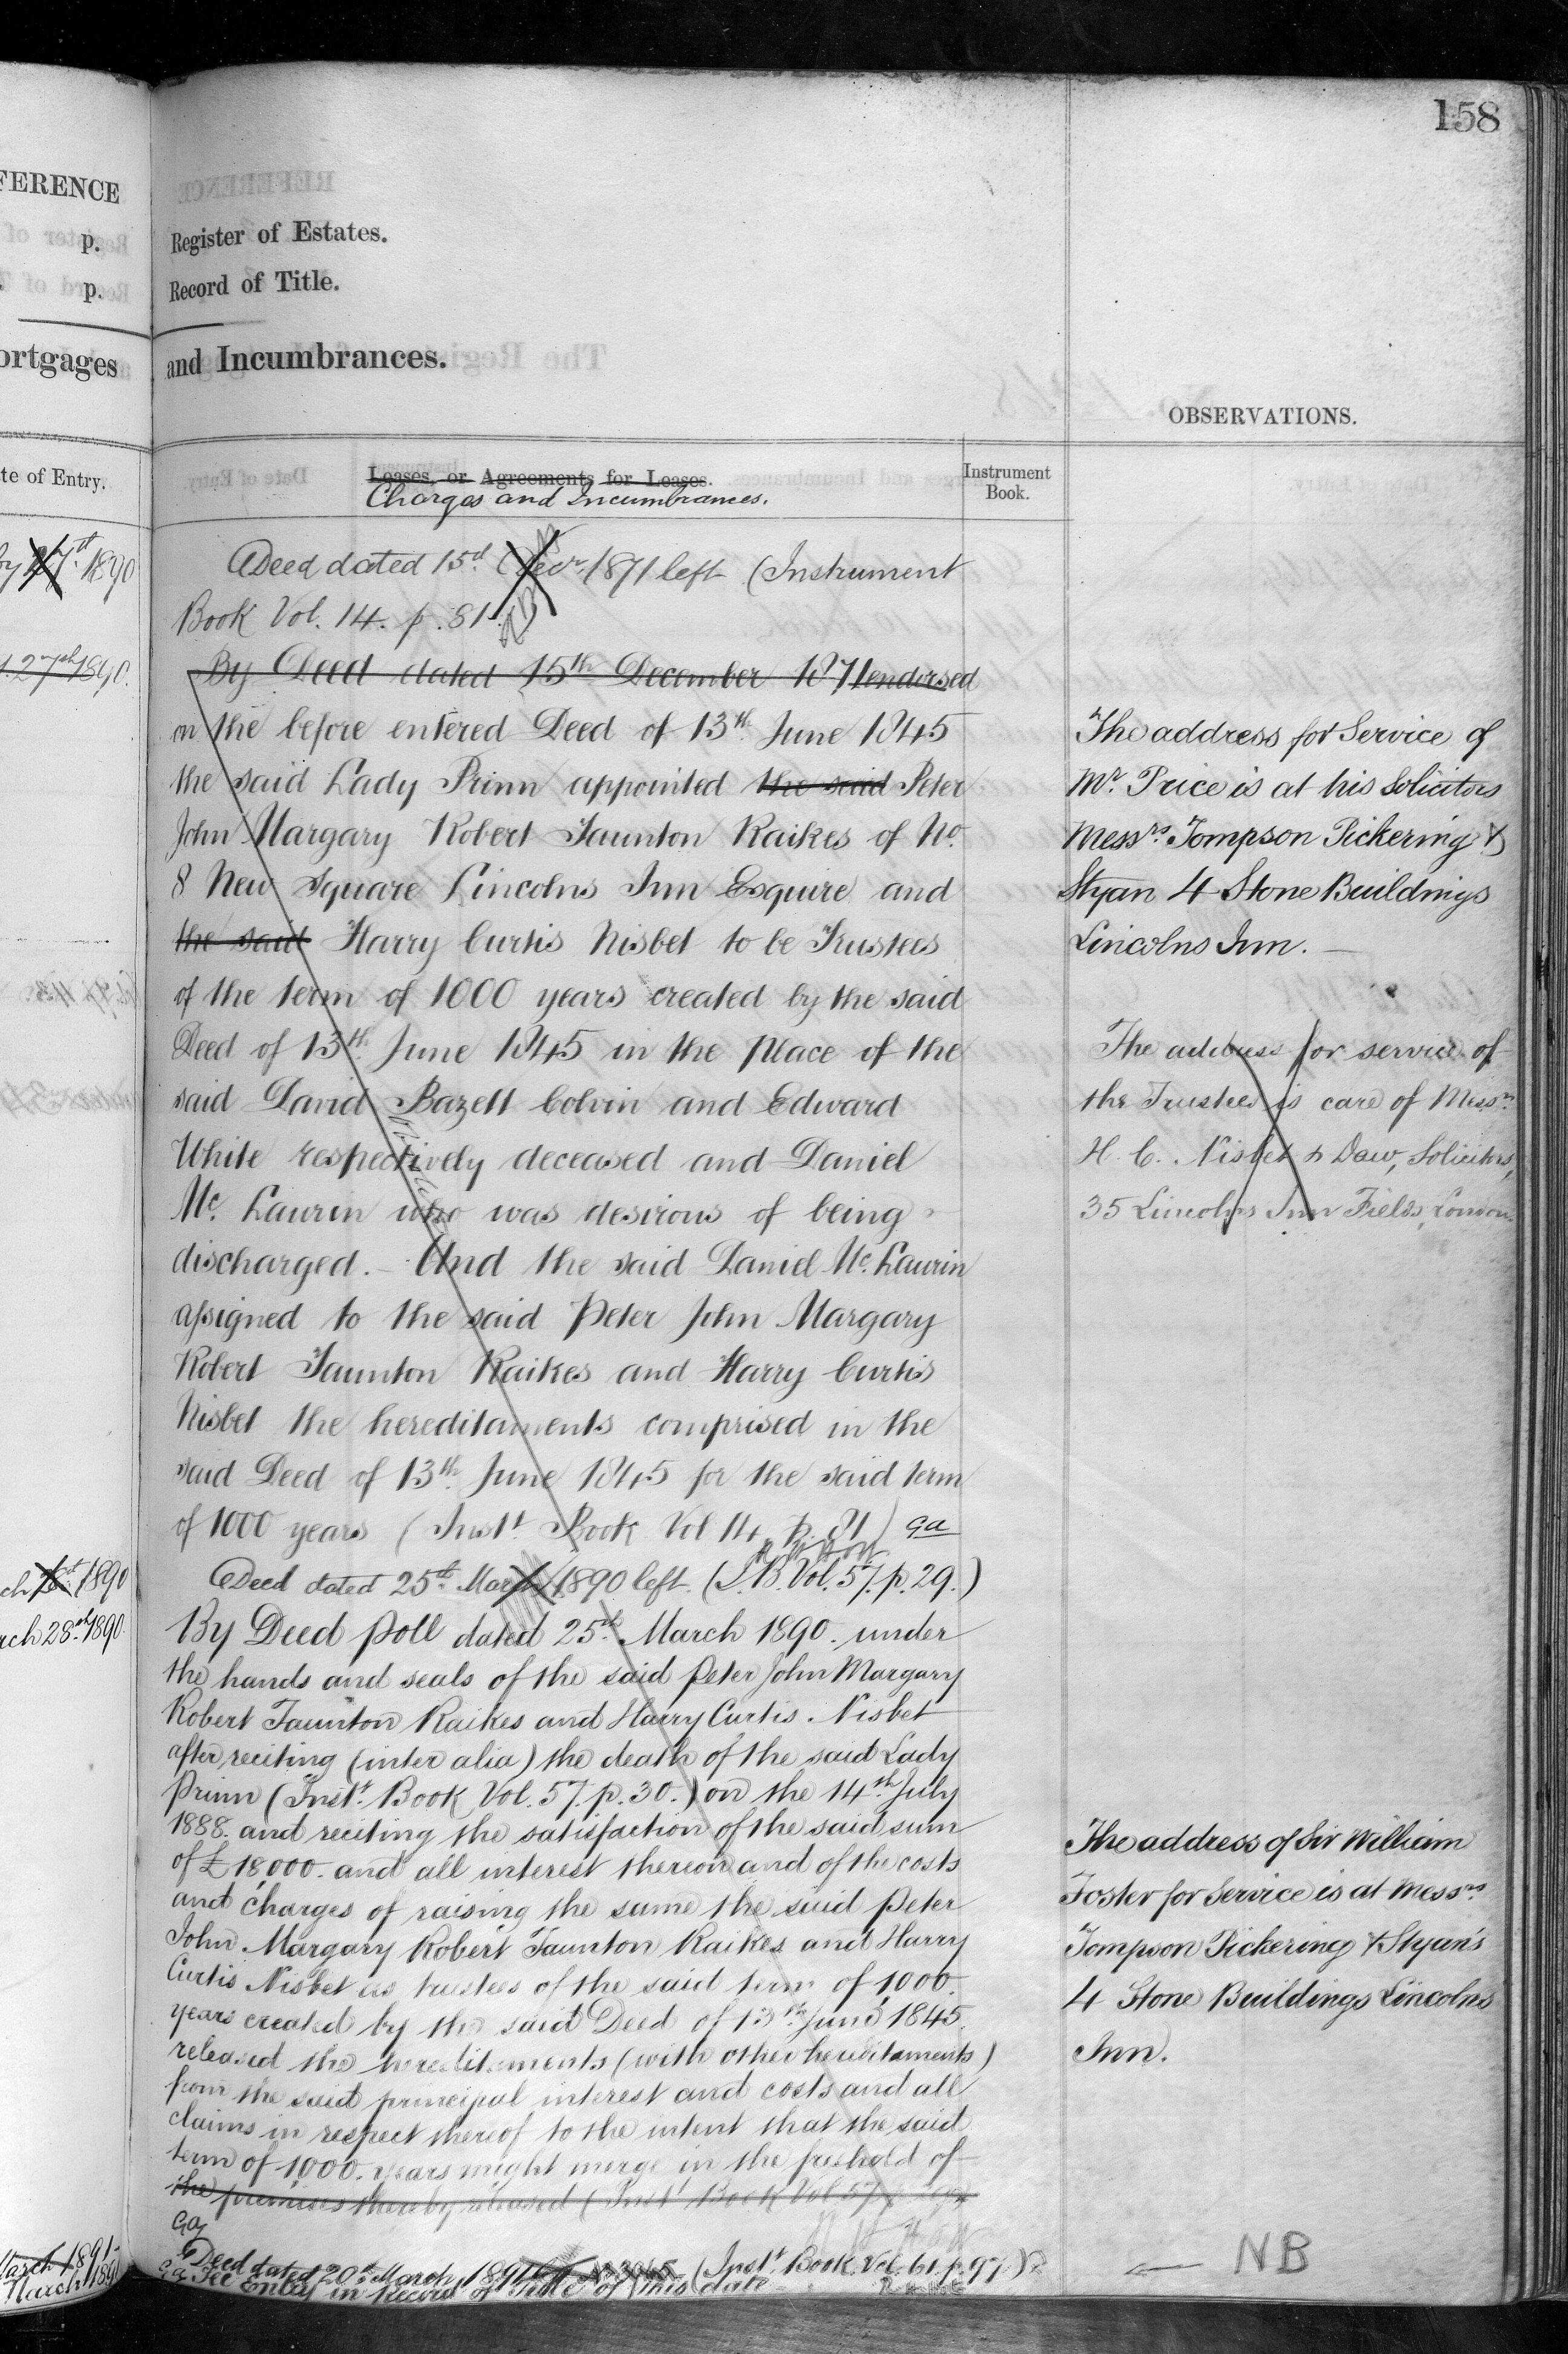 158
FERENCE
p.
p.
ortgages
te of Entry.
1890
1890.
1890
rch 28th 1890
March 1891
March 1891
Register of Estates.
Record of Title.
and Incumbrances.
OBSERVATIONS.
Leases, or Agreements for Leases.
Charges and Incumbrances.
Instrument
Book.
Deed dated 15th Decr. 1871 left (Instrument
Book Vol. 14. p. 81.)
By Deed dated 15th December 1871 endorsed
on the before entered Deed of 13th June 1845
the said Lady Prinn appointed the said Peter
John Margary Robert Taunton Raikes of No.
8 New Square Lincolns Inn Esquire and
the said Harry Curtis Nisbet to be Trustees
of the term of 1000 years created by the said
Deed of 13th June 1845 in the place of the
said David Bazett Colvin and Edward
White respectively deceased and Daniel
Mc. Laurin who was desirous of being
discharged. – And the said Daniel Mc. Laurin
assigned to the said Peter John Margary
Robert Taunton Raikes and Harry Curtis
Nisbet the hereditaments comprised in the
said Deed of 13th June 1845 for the said term
of 1000 years (Instt. Book Vol 14, p. 81) ga
Deed dated 25th March 1890 left. (I.B. Vol. 57. p. 29.)
By Deed Poll dated 25th March 1890. under
the hands and seals of the said Peter John Margary
Robert Taunton Raikes and Harry Curtis Nisbet
after reciting (inter alia) the death of the said Lady
Prinn (Instt. Book Vol. 57. p. 30.) on the 14th July
1888. and reciting the satisfaction of the said sum
of £18,000. and all interest thereon and of the costs
and charges of raising the same the said Peter
John Margary Robert Taunton Raikes and Harry
Curtis Nisbet as trustees of the said term of 1000.
years created by the said Deed of 13th June 1845.
released the hereditaments (with other hereditaments)
from the said principal interest and costs and all
claims in respect thereof to the intent that the said
term of 1000. years might merge in the freehold of
the premises thereby released (Instt Book Vol 57
Ga
Deed dated 20th March 1891 (Instt. Book. Vol. 61. p. 97.)
See Entry in Record of Title of this date
The address for Service of
Mr. Price is at his Solicitors
Messrs. Tompson Pickering &
Styan 4 Stone Buildings
Lincolns Inn. —
The address for service of
the Trustees is care of Messrs.
H. C. Nisbet & Daw, Solicitors,
35 Lincolns Inn Fields, London
The address of Sir William
Foster for Service is at Messrs.
Tompson Pickering & Styan's
4 Stone Buildings Lincolns
Inn.
← NB